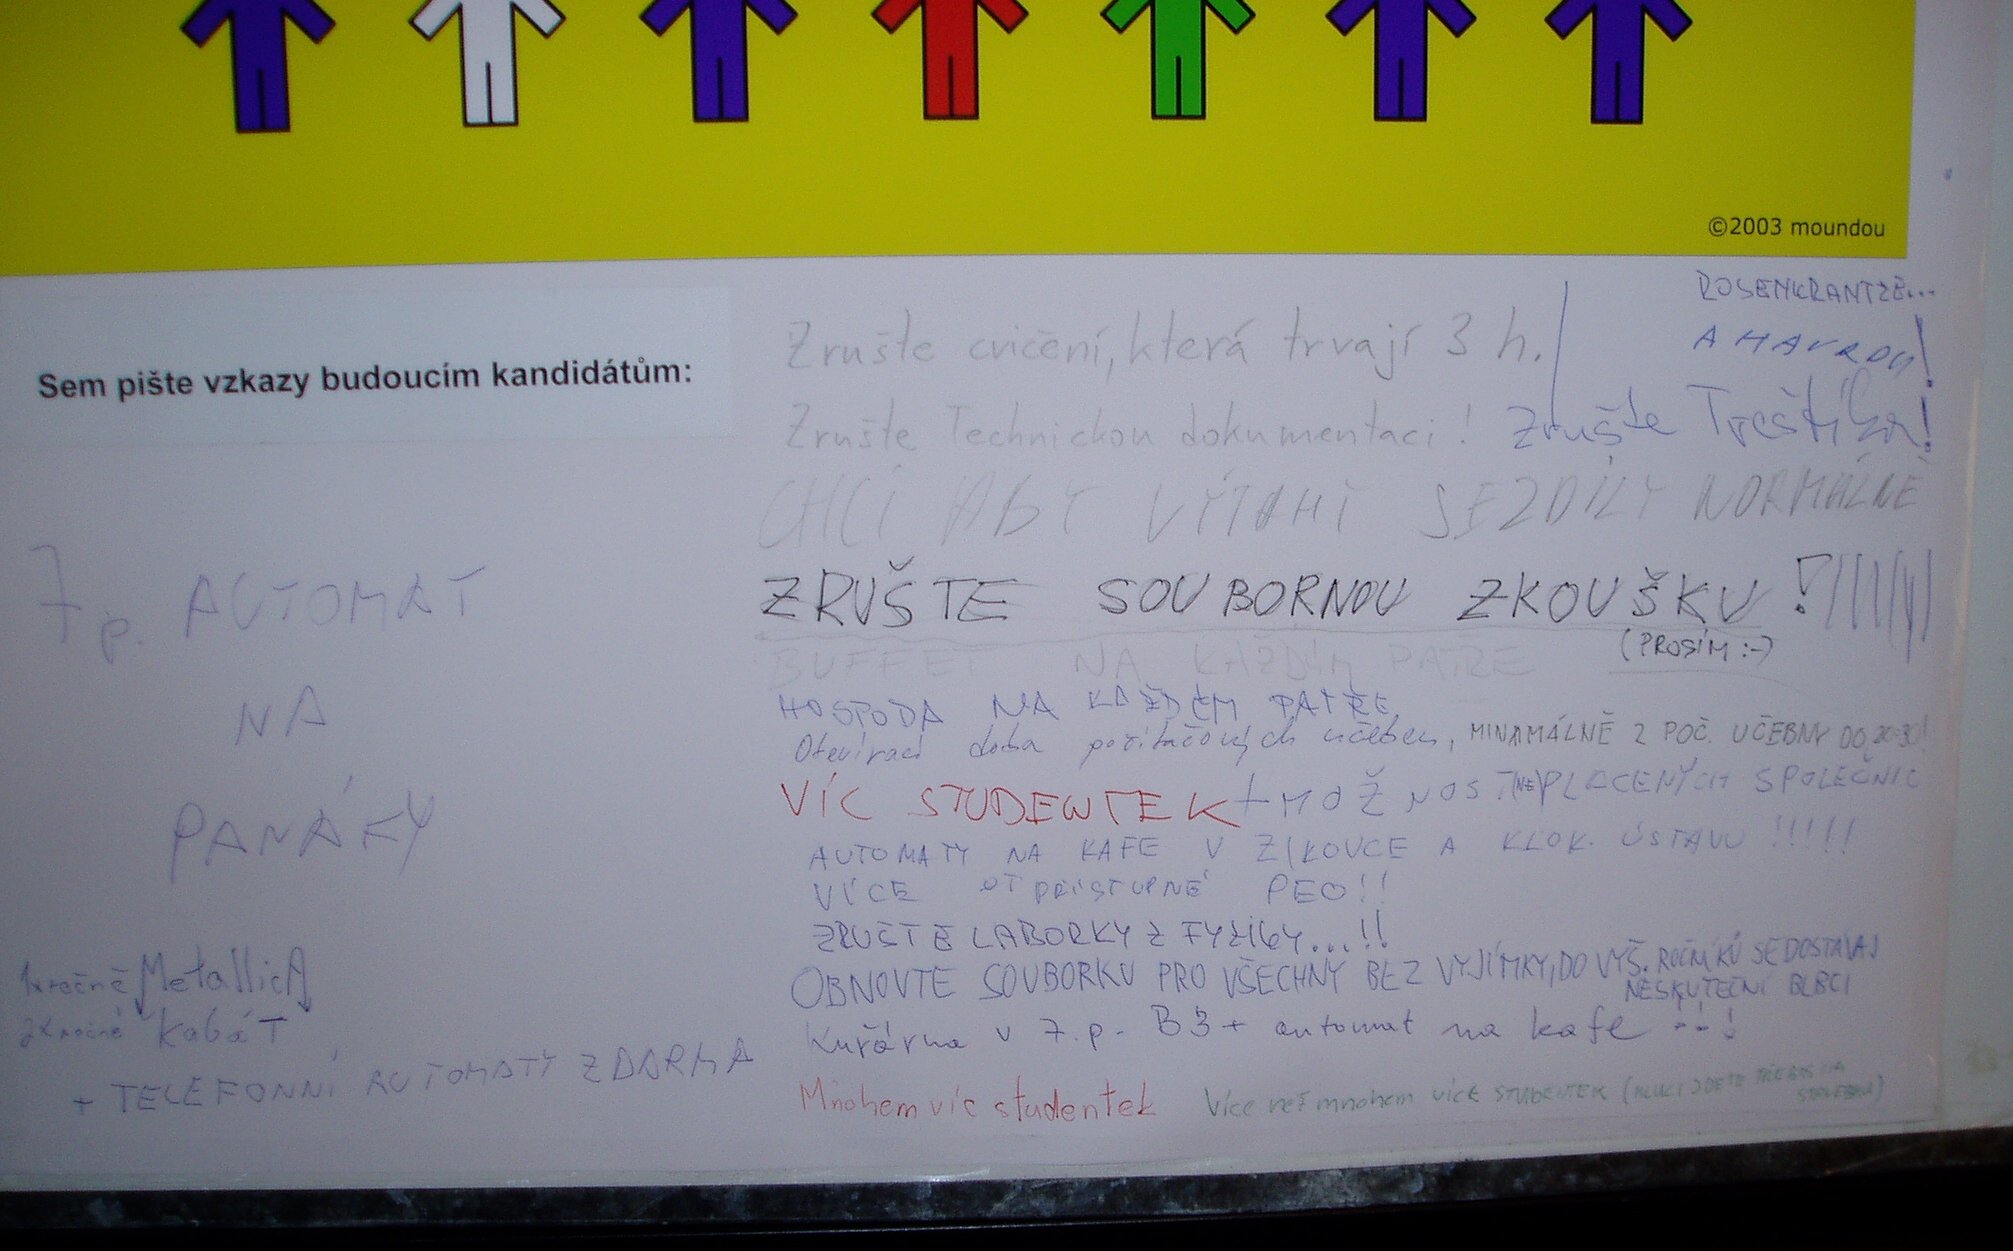 ©2003 moundou
Sem pište vzkazy budoucím kandidátům:
7 p. AUTOMAT
NA
PANÁKY
1x ročně MetallicA
2x ročně KabáT
+ TELEFONNÍ AUTOMATY ZDARMA
ROSENKRANTZE...
A HAVRDU!
Zrušte cvičení, která trvají 3 h.
Zrušte Technickou dokumentaci! Zrušte Treštíka!
CHCI ABY VÝTAHY JEZDILY NORMÁLNĚ
ZRUŠTE SOUBORNOU ZKOUŠKU!
(PROSÍM :-)
BUFFET NA KAŽDÉM PATŘE
HOSPODA NA KAŽDÉM PATŘE
Otevírací doba počítačových učeben, MINIMÁLNĚ 2 POČ. UČEBNY DO 20:30!
VÍC STUDENTEK + MOŽNOST (NE)PLACENÝCH SPOLEČNIC
AUTOMATY NA KAFE V ZIKOVCE A KLOK. ÚSTAVU !!!!!
VÍCE PŘÍSTUPNÉ PEO!!
ZRUŠTE LABORKY Z FYZIKY...!!
OBNOVTE SOUBORKU PRO VŠECHNY BEZ VYJÍMKY, DO VYŠ. ROČNÍKŮ SE DOSTÁVAJ
NESKUTEČNÍ BLBCI
Kuřárna v 7.p. B3 + automat na kafe !
Mnohem víc studentek
Více než mnohem více STUDENTEK